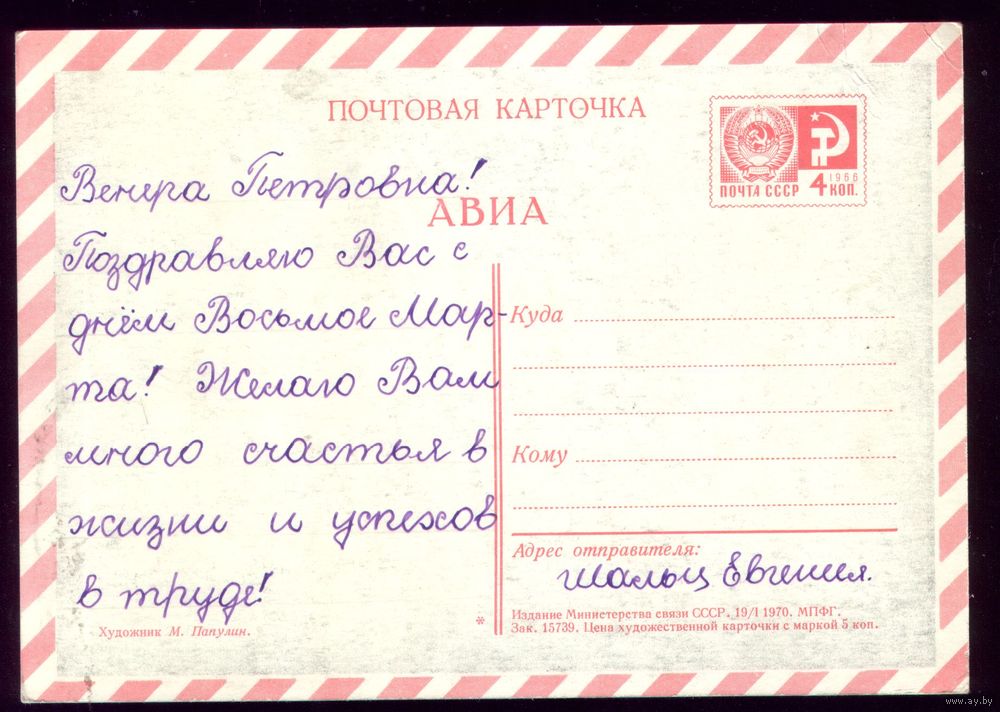 ПОЧТОВАЯ КАРТОЧКА
ПОЧТА СССР
1966
4 КОП.
АВИА
Венера Петровна!
Поздравляю Вас с
днём Восьмое Мар-
та! Желаю Вам
много счастья в
жизни и успехов
в труде!
Художник М. Папулин.
Куда
Кому
Адрес отправителя:
Шальц Евгения.
*
Издание Министерства связи СССР. 19/I 1970. МПФГ.
Зак. 15739. Цена художественной карточки с маркой 5 коп.
www.ay.by